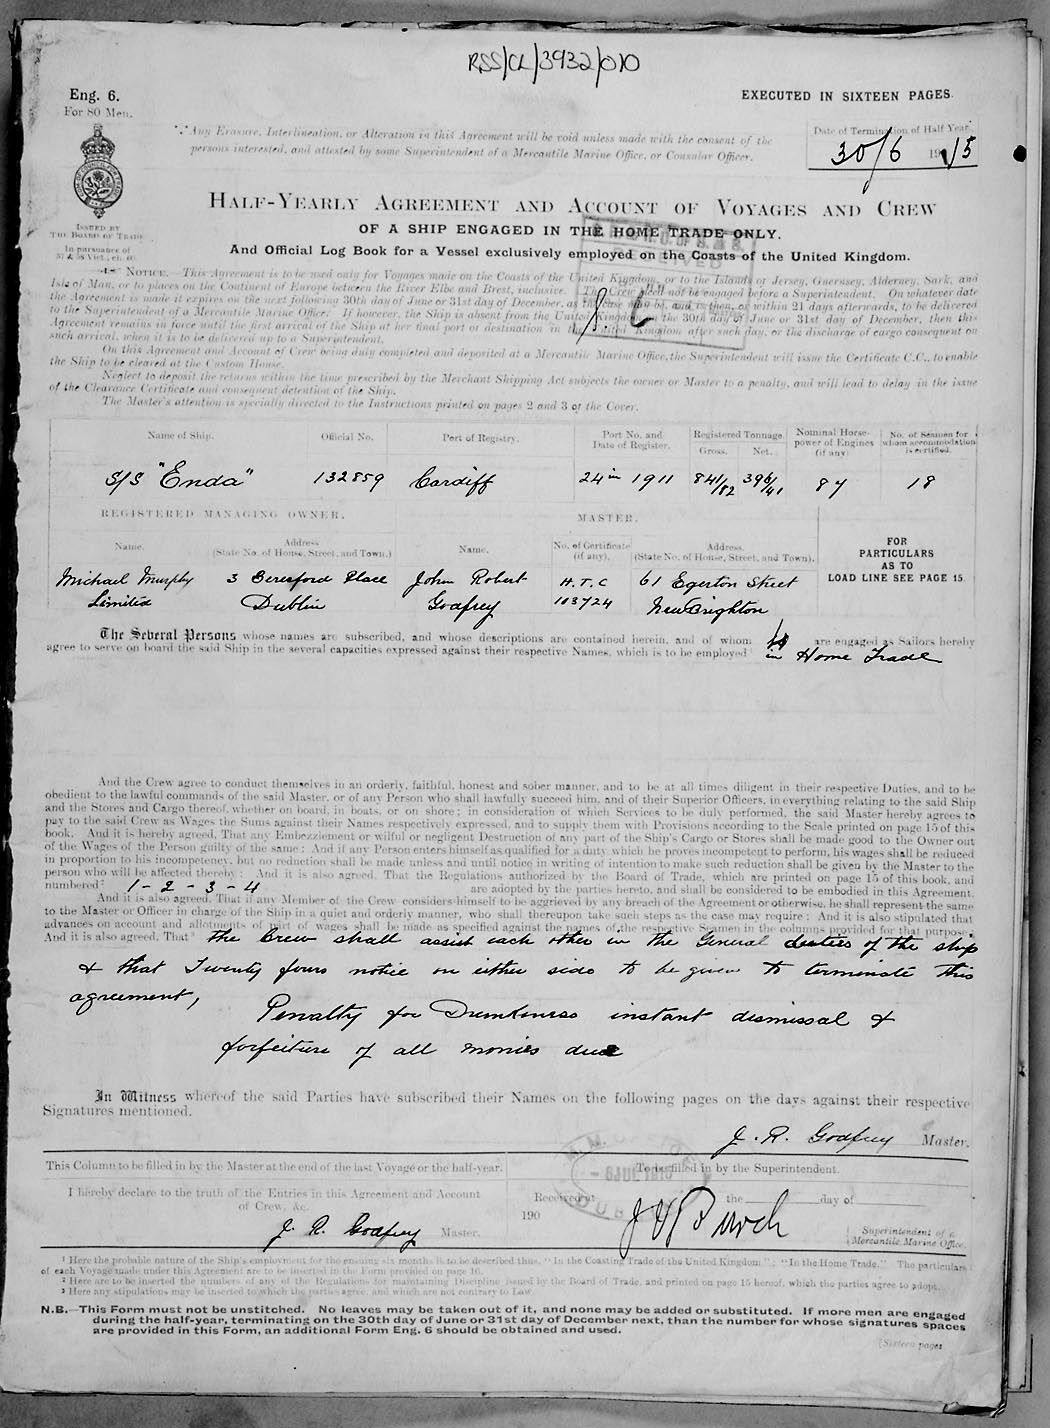 RSS/CL/3932/010
Eng. 6.
For 80 Men.
EXECUTED IN SIXTEEN PAGES.
Any Erasure, Interlineation, or Alteration in this Agreement will be void unless made with the consent of the
persons interested, and attested by some Superintendent of a Mercantile Marine Office, or Consular Officer.
Date of Termination of Half Year
30/6 1915
ISSUED BY
THE BOARD OF TRADE
In pursuance of
57 & 58 Vict., ch. 60.
HALF-YEARLY AGREEMENT AND ACCOUNT OF VOYAGES AND CREW
OF A SHIP ENGAGED IN THE HOME TRADE ONLY.
And Official Log Book for a Vessel exclusively employed on the Coasts of the United Kingdom.
RECEIVED
NOTICE.—This Agreement is to be used only for Voyages made on the Coasts of the United Kingdom, or to the Islands of Jersey, Guernsey, Alderney, Sark, and
Isle of Man, or to places on the Continent of Europe between the River Elbe and Brest, inclusive. The Crew need not be engaged before a Superintendent. On whatever date
the Agreement is made it expires on the next following 30th day of June or 31st day of December, as the case may be, and is then, or within 21 days afterwards, to be delivered
to the Superintendent of a Mercantile Marine Office. If however, the Ship is absent from the United Kingdom on the 30th day of June or 31st day of December, then this
Agreement remains in force until the first arrival of the Ship at her final port of destination in the United Kingdom after such day, or the discharge of cargo consequent on
such arrival, when it is to be delivered up to a Superintendent.
On this Agreement and Account of Crew being duly completed and deposited at a Mercantile Marine Office, the Superintendent will issue the Certificate C.C., to enable
the Ship to be cleared at the Custom House.
Neglect to deposit the returns within the time prescribed by the Merchant Shipping Act subjects the owner or Master to a penalty, and will lead to delay in the issue
of the Clearance Certificate and consequent detention of the Ship.
The Master's attention is specially directed to the Instructions printed on pages 2 and 3 of the Cover.
Name of Ship. Official No. Port of Registry. Port No. and Date of Register. Registered Tonnage. Gross. Net. Nominal Horse-power of Engines (if any) No. of Seamen for whom accommodation is certified.
S/S "Enda" 132859 Cardiff 24 in 1911 841/82 396/41 87 18
REGISTERED MANAGING OWNER. MASTER.
Name. Address (State No. of House, Street, and Town.) Name. No. of Certificate (if any). Address. (State No. of House, Street, and Town).
FOR
PARTICULARS
AS TO
LOAD LINE SEE PAGE 15.
Michael Murphy 3 Beresford Place John Robert H.T.C 61 Egerton Street
Limited Dublin Godfrey 103724 New Brighton
The Several Persons whose names are subscribed, and whose descriptions are contained herein, and of whom are engaged as Sailors hereby
agree to serve on board the said Ship in the several capacities expressed against their respective Names, which is to be employed¹ in Home Trade
And the Crew agree to conduct themselves in an orderly, faithful, honest and sober manner, and to be at all times diligent in their respective Duties, and to be
obedient to the lawful commands of the said Master, or of any Person who shall lawfully succeed him, and of their Superior Officers, in everything relating to the said Ship
and the Stores and Cargo thereof, whether on board, in boats, or on shore; in consideration of which Services to be duly performed, the said Master hereby agrees to
pay to the said Crew as Wages the Sums against their Names respectively expressed, and to supply them with Provisions according to the Scale printed on page 15 of this
book. And it is hereby agreed, That any Embezzlement or wilful or negligent Destruction of any part of the Ship's Cargo or Stores shall be made good to the Owner out
of the Wages of the Person guilty of the same: And if any Person enters himself as qualified for a duty which he proves incompetent to perform, his wages shall be reduced
in proportion to his incompetency, but no reduction shall be made unless and until notice in writing of intention to make such reduction shall be given by the Master to the
person who will be affected thereby: And it is also agreed, That the Regulations authorized by the Board of Trade, which are printed on page 15 of this book, and
numbered² 1-2-3-4 are adopted by the parties hereto, and shall be considered to be embodied in this Agreement.
And it is also agreed, That if any Member of the Crew considers himself to be aggrieved by any breach of the Agreement or otherwise, he shall represent the same
to the Master or Officer in charge of the Ship in a quiet and orderly manner, who shall thereupon take such steps as the case may require: And it is also stipulated that
advances on account and allotments of part of wages shall be made as specified against the names of the respective Seamen in the columns provided for that purpose.
And it is also agreed, That³ the Crew shall assist each other in the General duties of the ship
& that Twenty fours notice on either side to be given to terminate this
agreement,
Penalty for Drunkeness instant dismissal &
forfeiture of all monies due
In Witness whereof the said Parties have subscribed their Names on the following pages on the days against their respective
Signatures mentioned.
J. R. Godfrey Master.
This Column to be filled in by the Master at the end of the last Voyage or the half-year.
To be filled in by the Superintendent.
I hereby declare to the truth of the Entries in this Agreement and Account
of Crew, &c.
J. R. Godfrey Master.
-8 JUL 1915
DUBLIN
Received at the day of
190
Superintendent of a
Mercantile Marine Office.
¹ Here the probable nature of the Ship's employment for the ensuing six months is to be described thus, "In the Coasting Trade of the United Kingdom"; "In the Home Trade." The particulars
of each Voyage made under this Agreement are to be inserted in the Form provided on page 16.
² Here are to be inserted the numbers of any of the Regulations for maintaining Discipline issued by the Board of Trade, and printed on page 15 hereof, which the parties agree to adopt.
³ Here any stipulations may be inserted to which the parties agree, and which are not contrary to Law.
N.B.—This Form must not be unstitched. No leaves may be taken out of it, and none may be added or substituted. If more men are engaged
during the half-year, terminating on the 30th day of June or 31st day of December next, than the number for whose signatures spaces
are provided in this Form, an additional Form Eng. 6 should be obtained and used.
[Sixteen pages